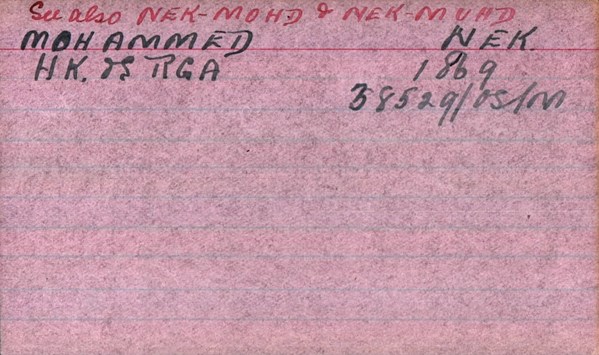 See also NEK-MOHD & NEK-MUHD
MOHAMMED NEK.
HK. & S RGA 1869
38529/OS/M